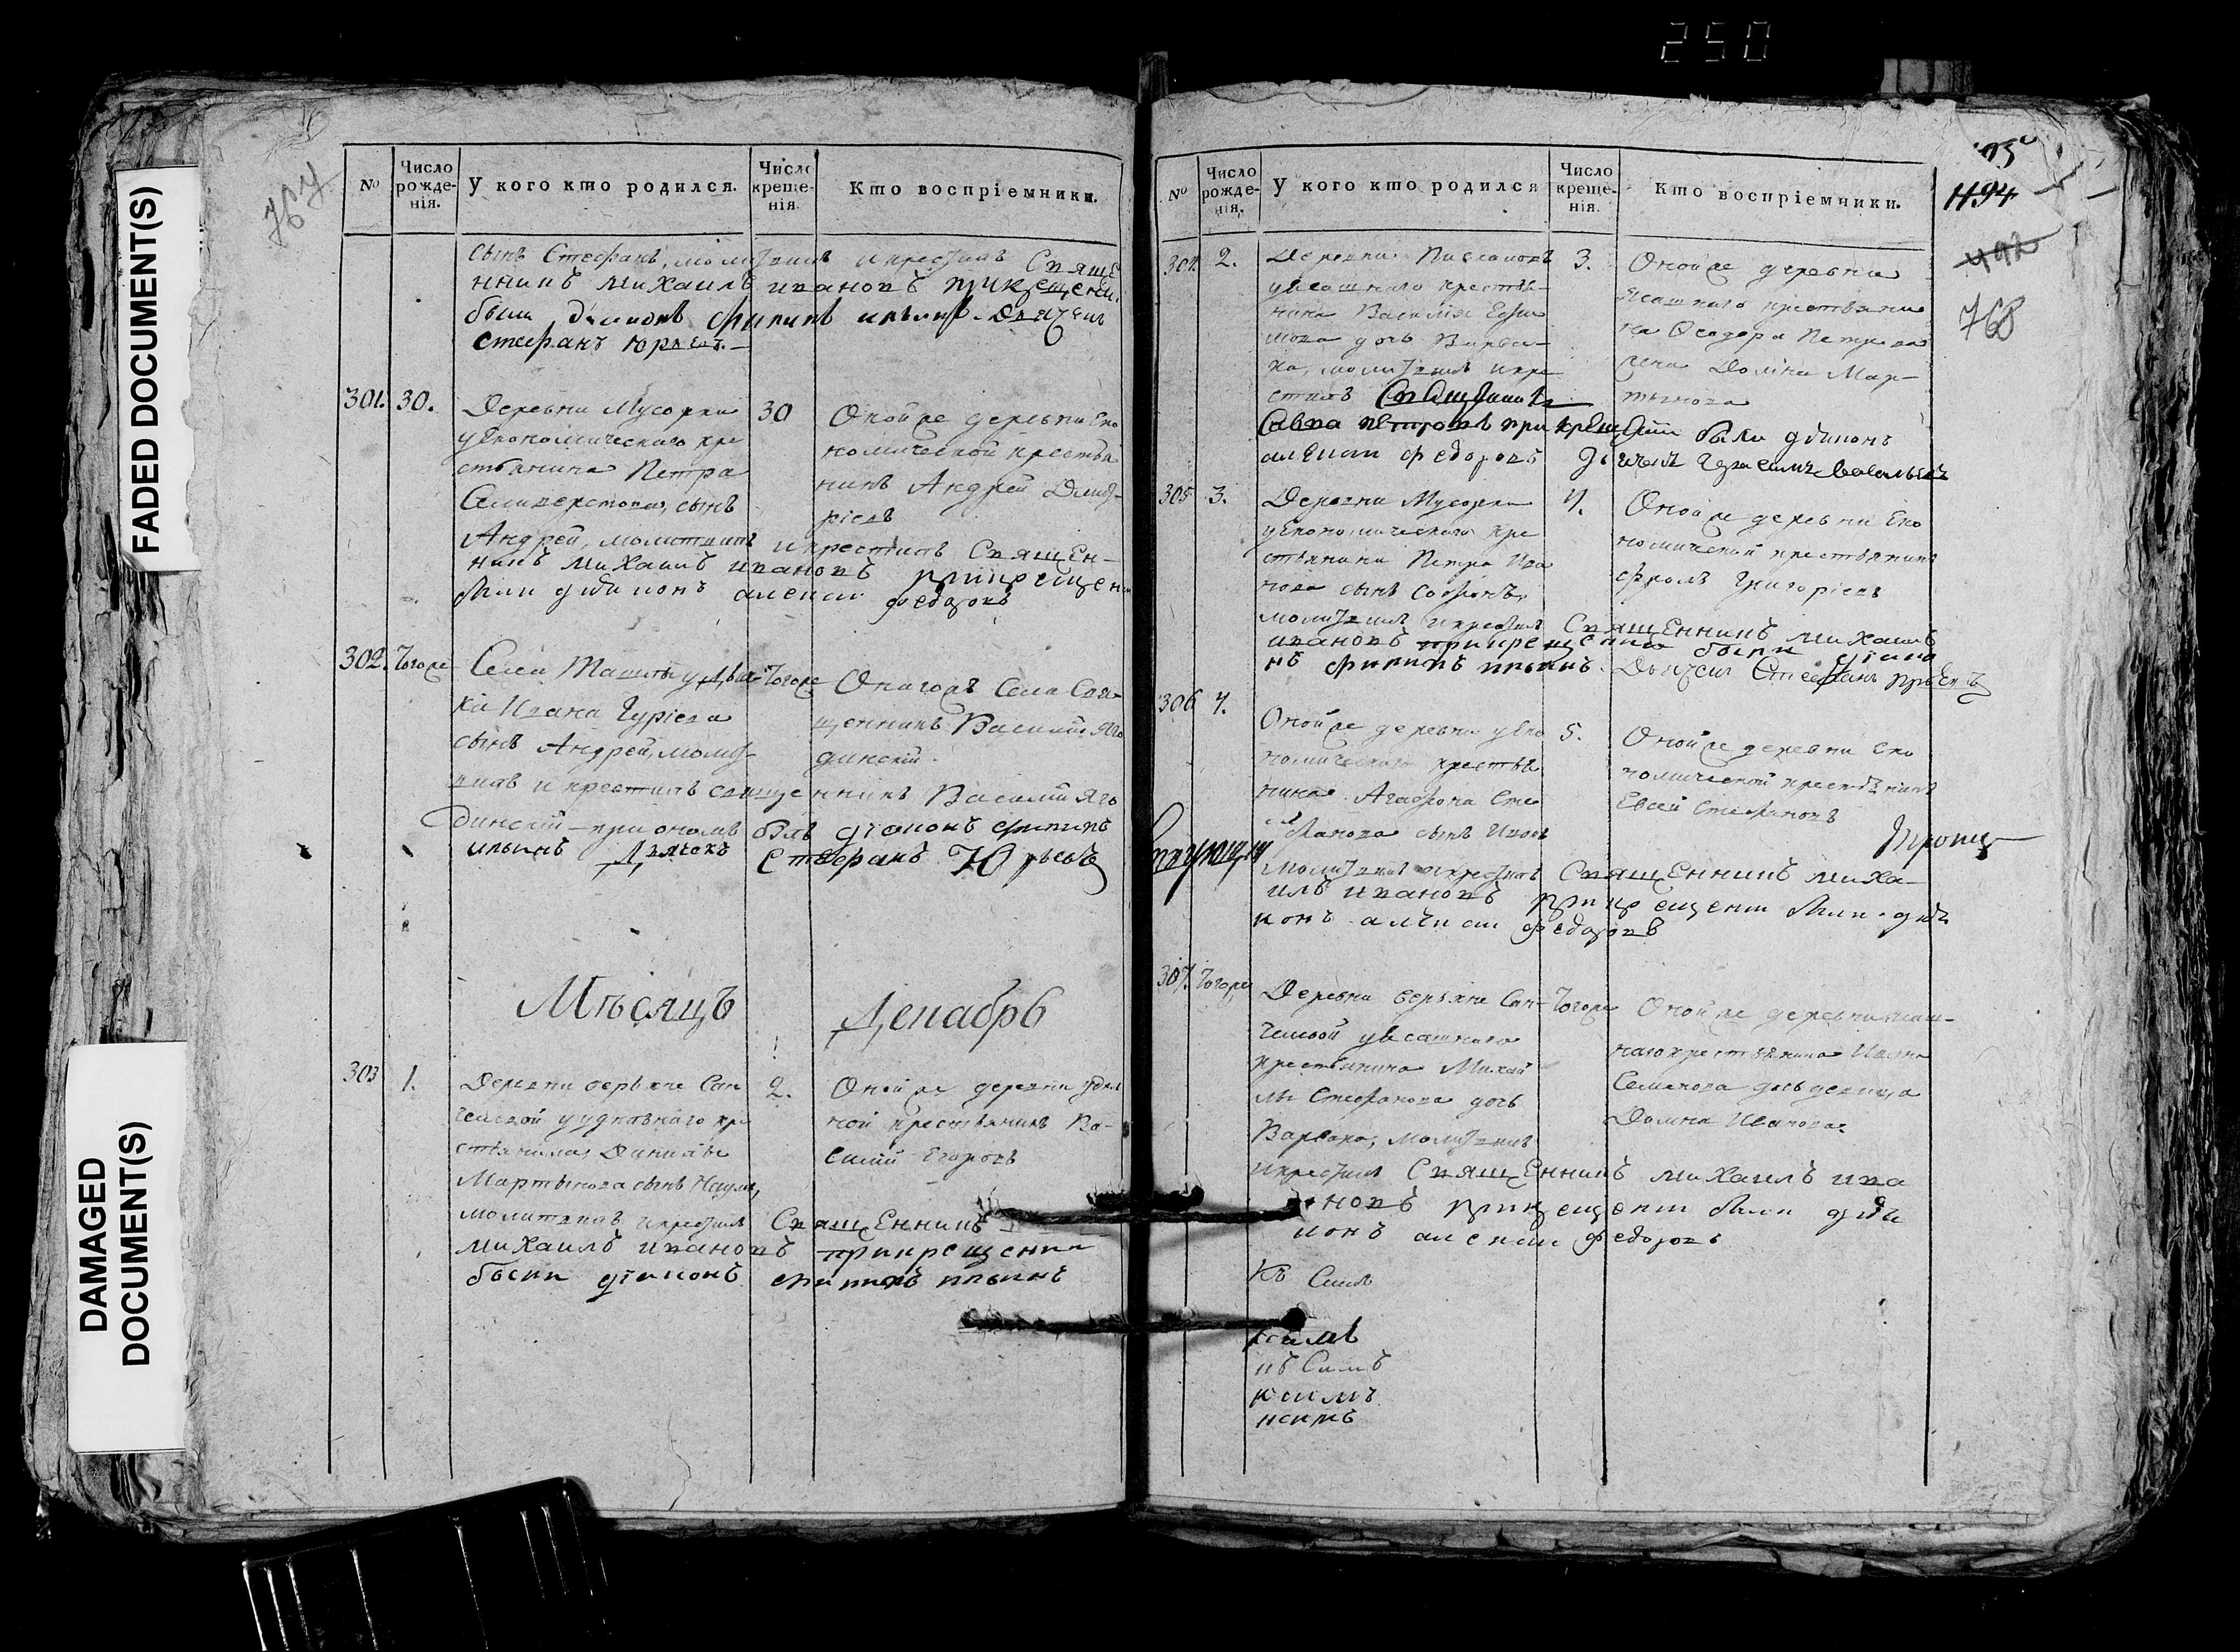 250
FADED DOCUMENT(S)
DAMAGED
DOCUMENT(S)
767
№
Число
рожде-
нія.
У кого кто родился.
Число
креще-
нія.
Кто воспріемники.
сынъ Стефанъ, молитвилъ и крестилъ Свяще
нникъ михаилъ ивановъ прикрещени
были дьяконъ филипъ ильинъ Дьячекъ
стефанъ юрьевъ
301. 30.
Деревни Мусорки
у Економическаго кре
стьянина Петра
Селиверстова, сынъ
Андрей, молитвилъ и крестилъ Священ-
никъ михаилъ ивановъ прикрещени
были діяконъ алексѣй федоровъ
30
Оной же деревни Еко
номической крестья
нинъ Андрей Дмит-
ріевъ
302. Тогоже
Села Ташлы у Дьяч
ка Ивана Гуріева
сынъ Андрей, молит-
вилъ и крестилъ священникъ Василій Яго
динскій при ономъ былъ діаконъ филипъ
ильинъ Дьячекъ Стефанъ Юрьевъ
Тогоже
Онагожъ Села Свя-
щенникъ Василій Яго
динскій.
Мѣсяцъ Декабрь
303 1.
Деревни верхне Сан
челеевой у удѣльнаго кре
стьянина Данилы
Мартынова сынъ Наумъ,
молитвилъ и крестилъ Священникъ
михаилъ ивановъ прикрещени
были діаконъ филипъ ильинъ
2.
Оной же деревни удѣль
ной крестьянинъ Ва-
силій Егоровъ
№
Число
рожде-
нія.
У кого кто родился
Число
креще-
нія.
Кто воспріемники.
1194
492
768
304. 2.
Деревни
уясашнаго крестья-
нина Василія Ефи
мова дочь Варва-
ра, молитвилъ и кре
стилъ Священникъ
Савва петровъ при крещеніи были діаконъ
алексѣй федоровъ дьячекъ Герасимъ Васильевъ
3.
Оной же деревни
ясашнаго крестьяни
на Феодора Петрова
жена Домна Мар-
тынова
305 3.
Деревни Мусорки
у Економическаго кре
стьянина Петра Ива
нова сынъ Софонъ,
молитвилъ и крестилъ Священникъ михаилъ
ивановъ прикрещении были діако
нъ филипъ ильинъ. Дьячекъ Стефанъ юрьевъ
4.
Оной же деревни Еко
номической крестьянинъ
Фролъ Григоріевъ
306 4.
Оной же деревни у Еко
номическаго крестья
нина Агафона Сте
фанова сынъ Иванъ
молитвилъ и крестилъ Священникъ миха-
илъ ивановъ прикрещени были діа
конъ алексѣй федоровъ
5.
Оной же деревни Еко
номической крестьянинъ
Евсей Стефановъ
307. Тогоже
Деревни верхне Сан-
челеевой уясашнаго
крестьянина Михай
лы Стефанова дочь
Варвара, молитвилъ
и крестилъ Священникъ михаилъ ива
новъ прикрещени были діа
конъ алексѣй федоровъ
Тогоже
Оной же деревни ясаш-
наго крестьянина Ивана
Семенова дочь девица
Домна Иванова
Къ Симъ